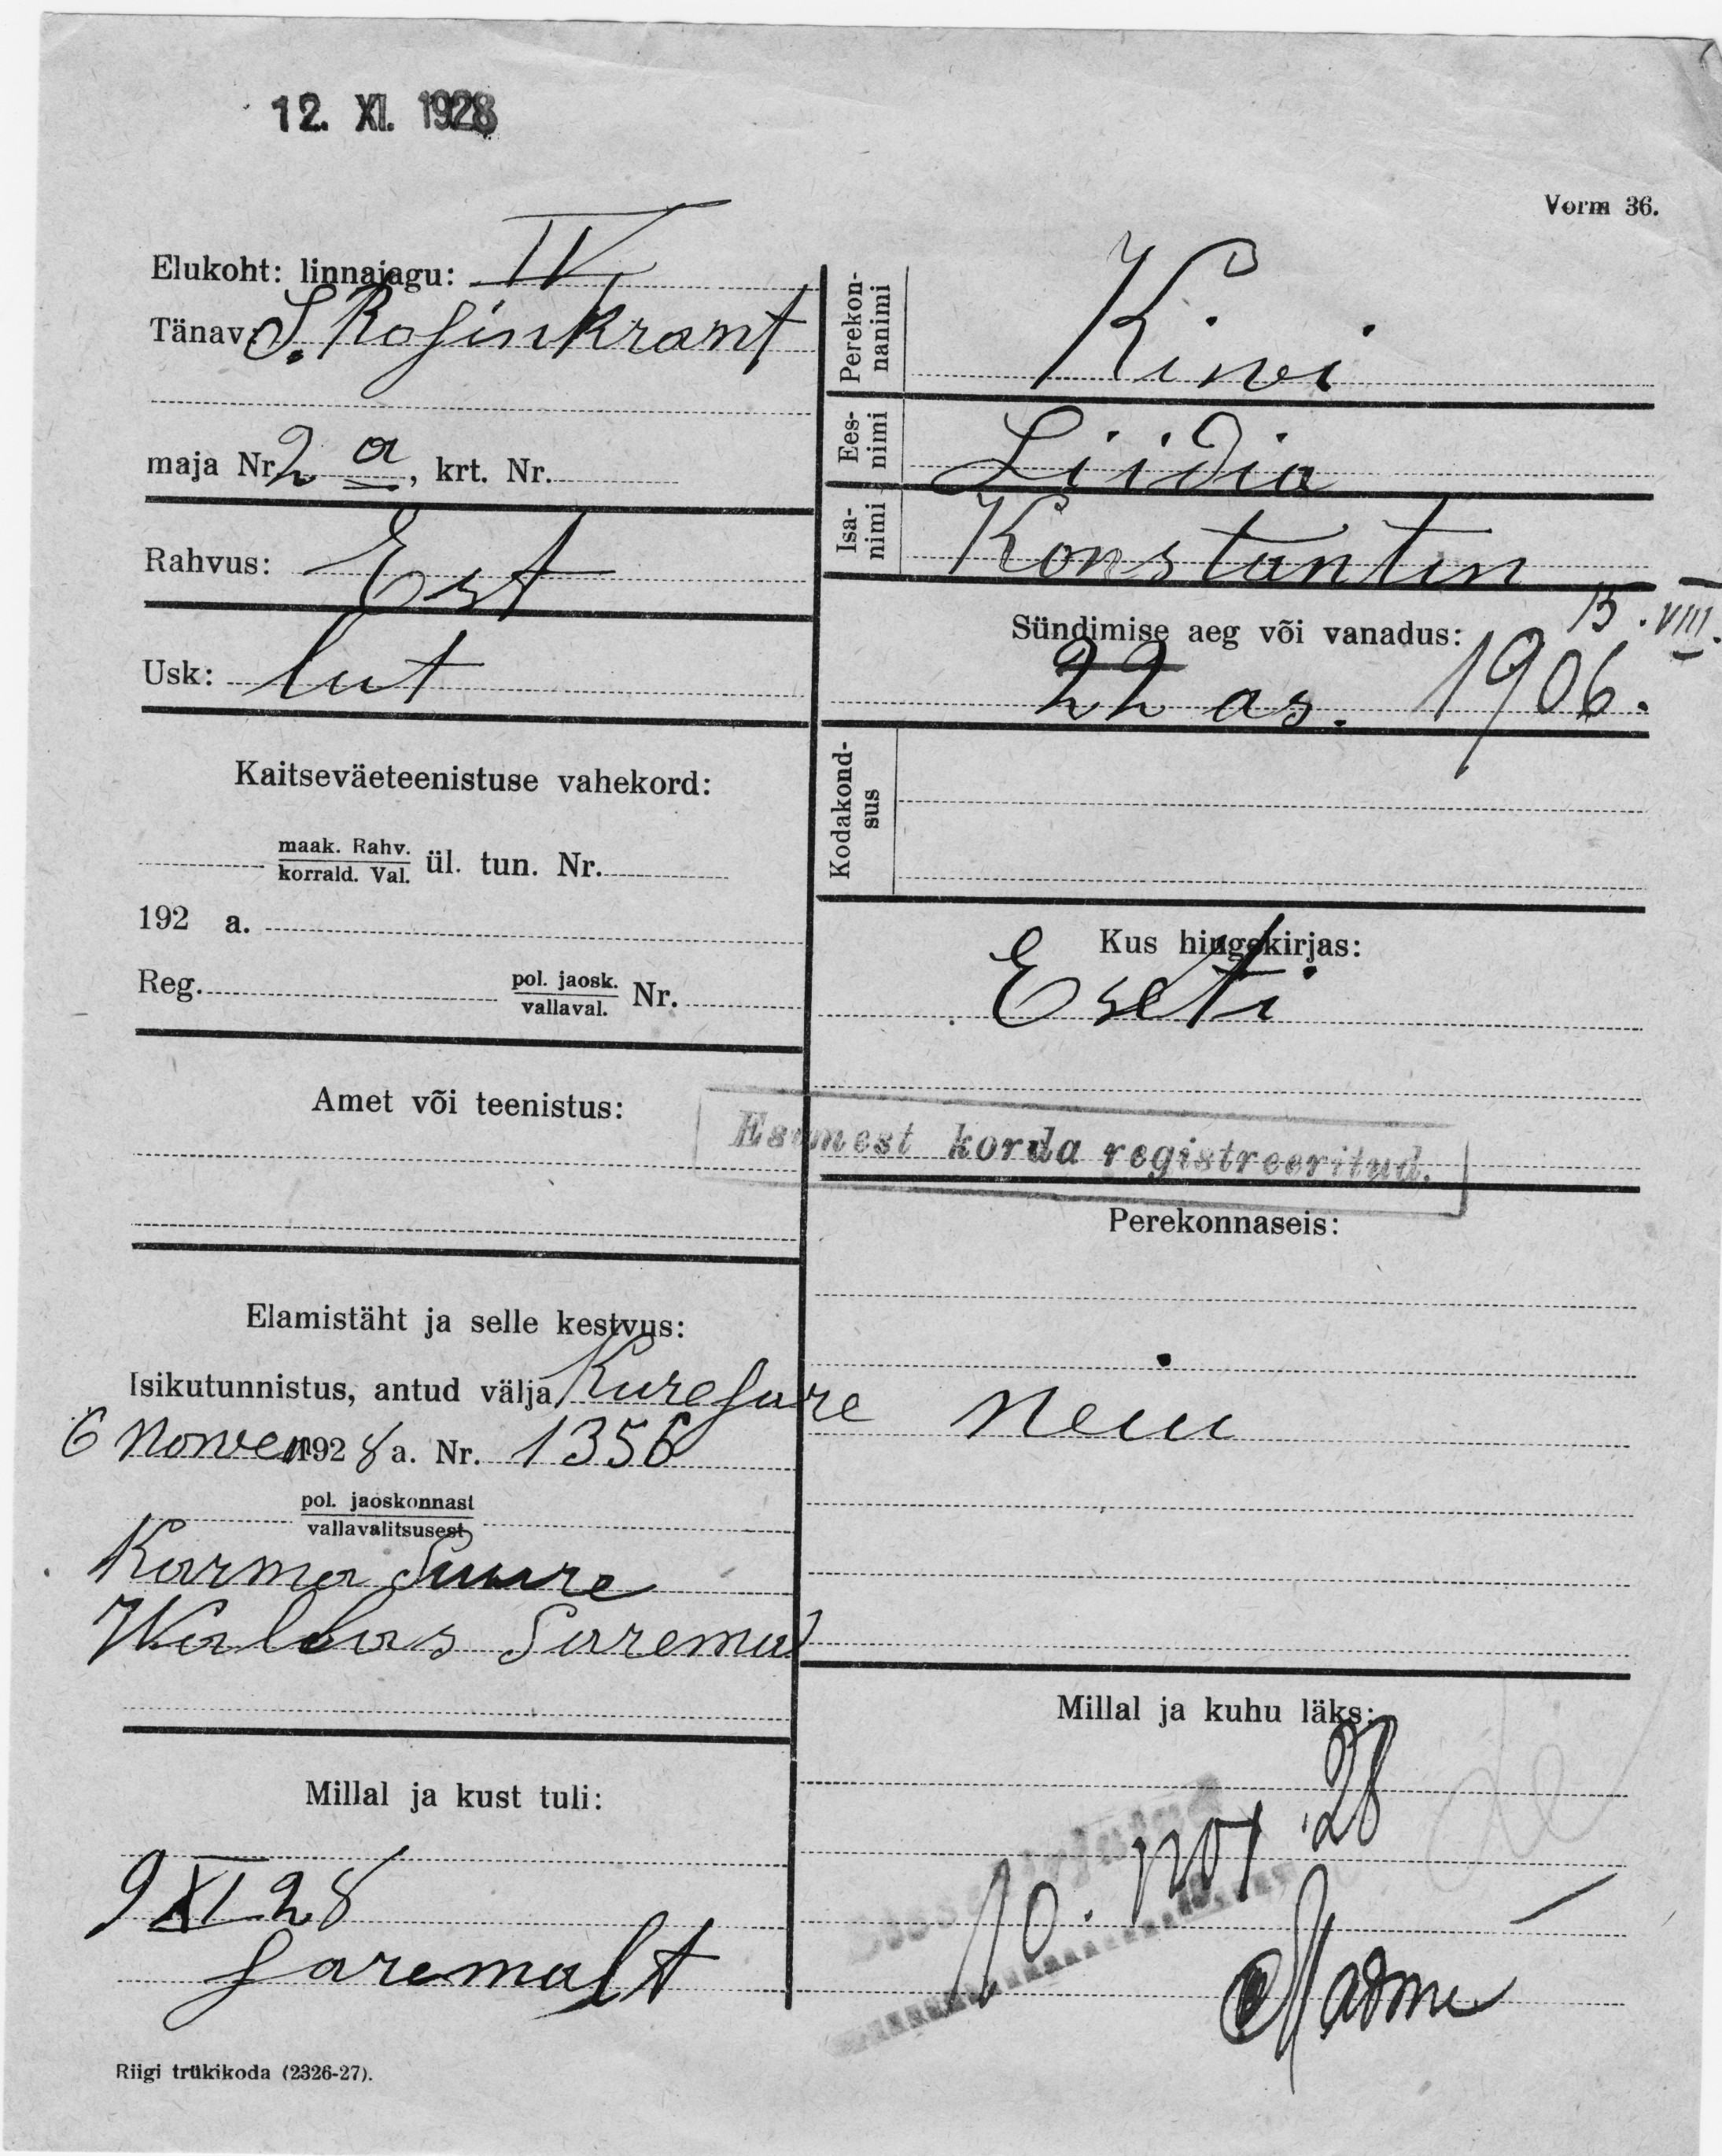 12. XI. 1928
Vorm 36.
Elukoht: linnajagu: IV
Tänav: S. Rosinkrant
maja Nr. 2 a, krt. Nr.
Rahvus: Est
Usk: lut
Kaitseväeteenistuse vahekord:
maak. Rahv.
korrald. Val. ül. tun. Nr.
192 a.
Reg. pol. jaosk.
vallaval. Nr.
Amet või teenistus:
Elamistäht ja selle kestvus:
Isikutunnistus, antud välja Kuresare
6 Nowem 1928 a. Nr. 1356
pol. jaoskonnast
vallavalitsusest
Karma Suure
Wallas Saremal
Millal ja kust tuli:
9 XI 28
Saremalt
Riigi trükikoda (2326-27).
Perekon-
nanimi Kiwi
Ees-
nimi Liidia
Isa-
nimi Konstantin
Sündimise aeg või vanadus: 15. VIII.
22 as. 1906.
Kodakond-
sus
Kus hingekirjas:
Eesti
Esimest korda registreeritud.
Perekonnaseis:
Neiu
Millal ja kuhu läks:
10. nov. 28